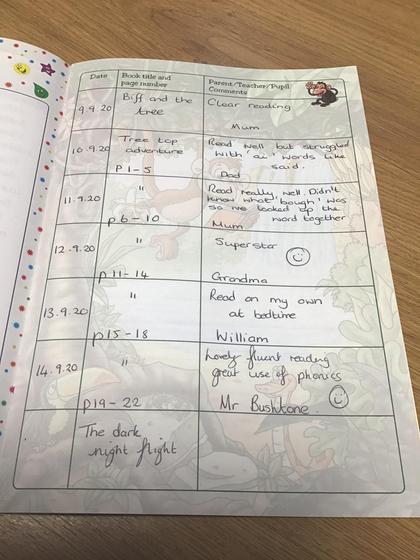 Date Book title and page number Parent/Teacher/Pupil Comments
9.9.20 Biff and the tree Clear reading
Mum
10.9.20 Tree top adventure Read well but struggled
with 'ai' words like
said.
p1-5 Dad
11.9.20 " Read really well. Didn't
know what 'bough' was
so we looked up the
word together
p6-10 Mum
12.9.20 " Superstar
p11-14 Grandma
13.9.20 " Read on my own
at bedtime
p15-18 William
14.9.20 " Lovely fluent reading
great use of phonics
p19-22 Mr Bushtone.
The dark
night flight